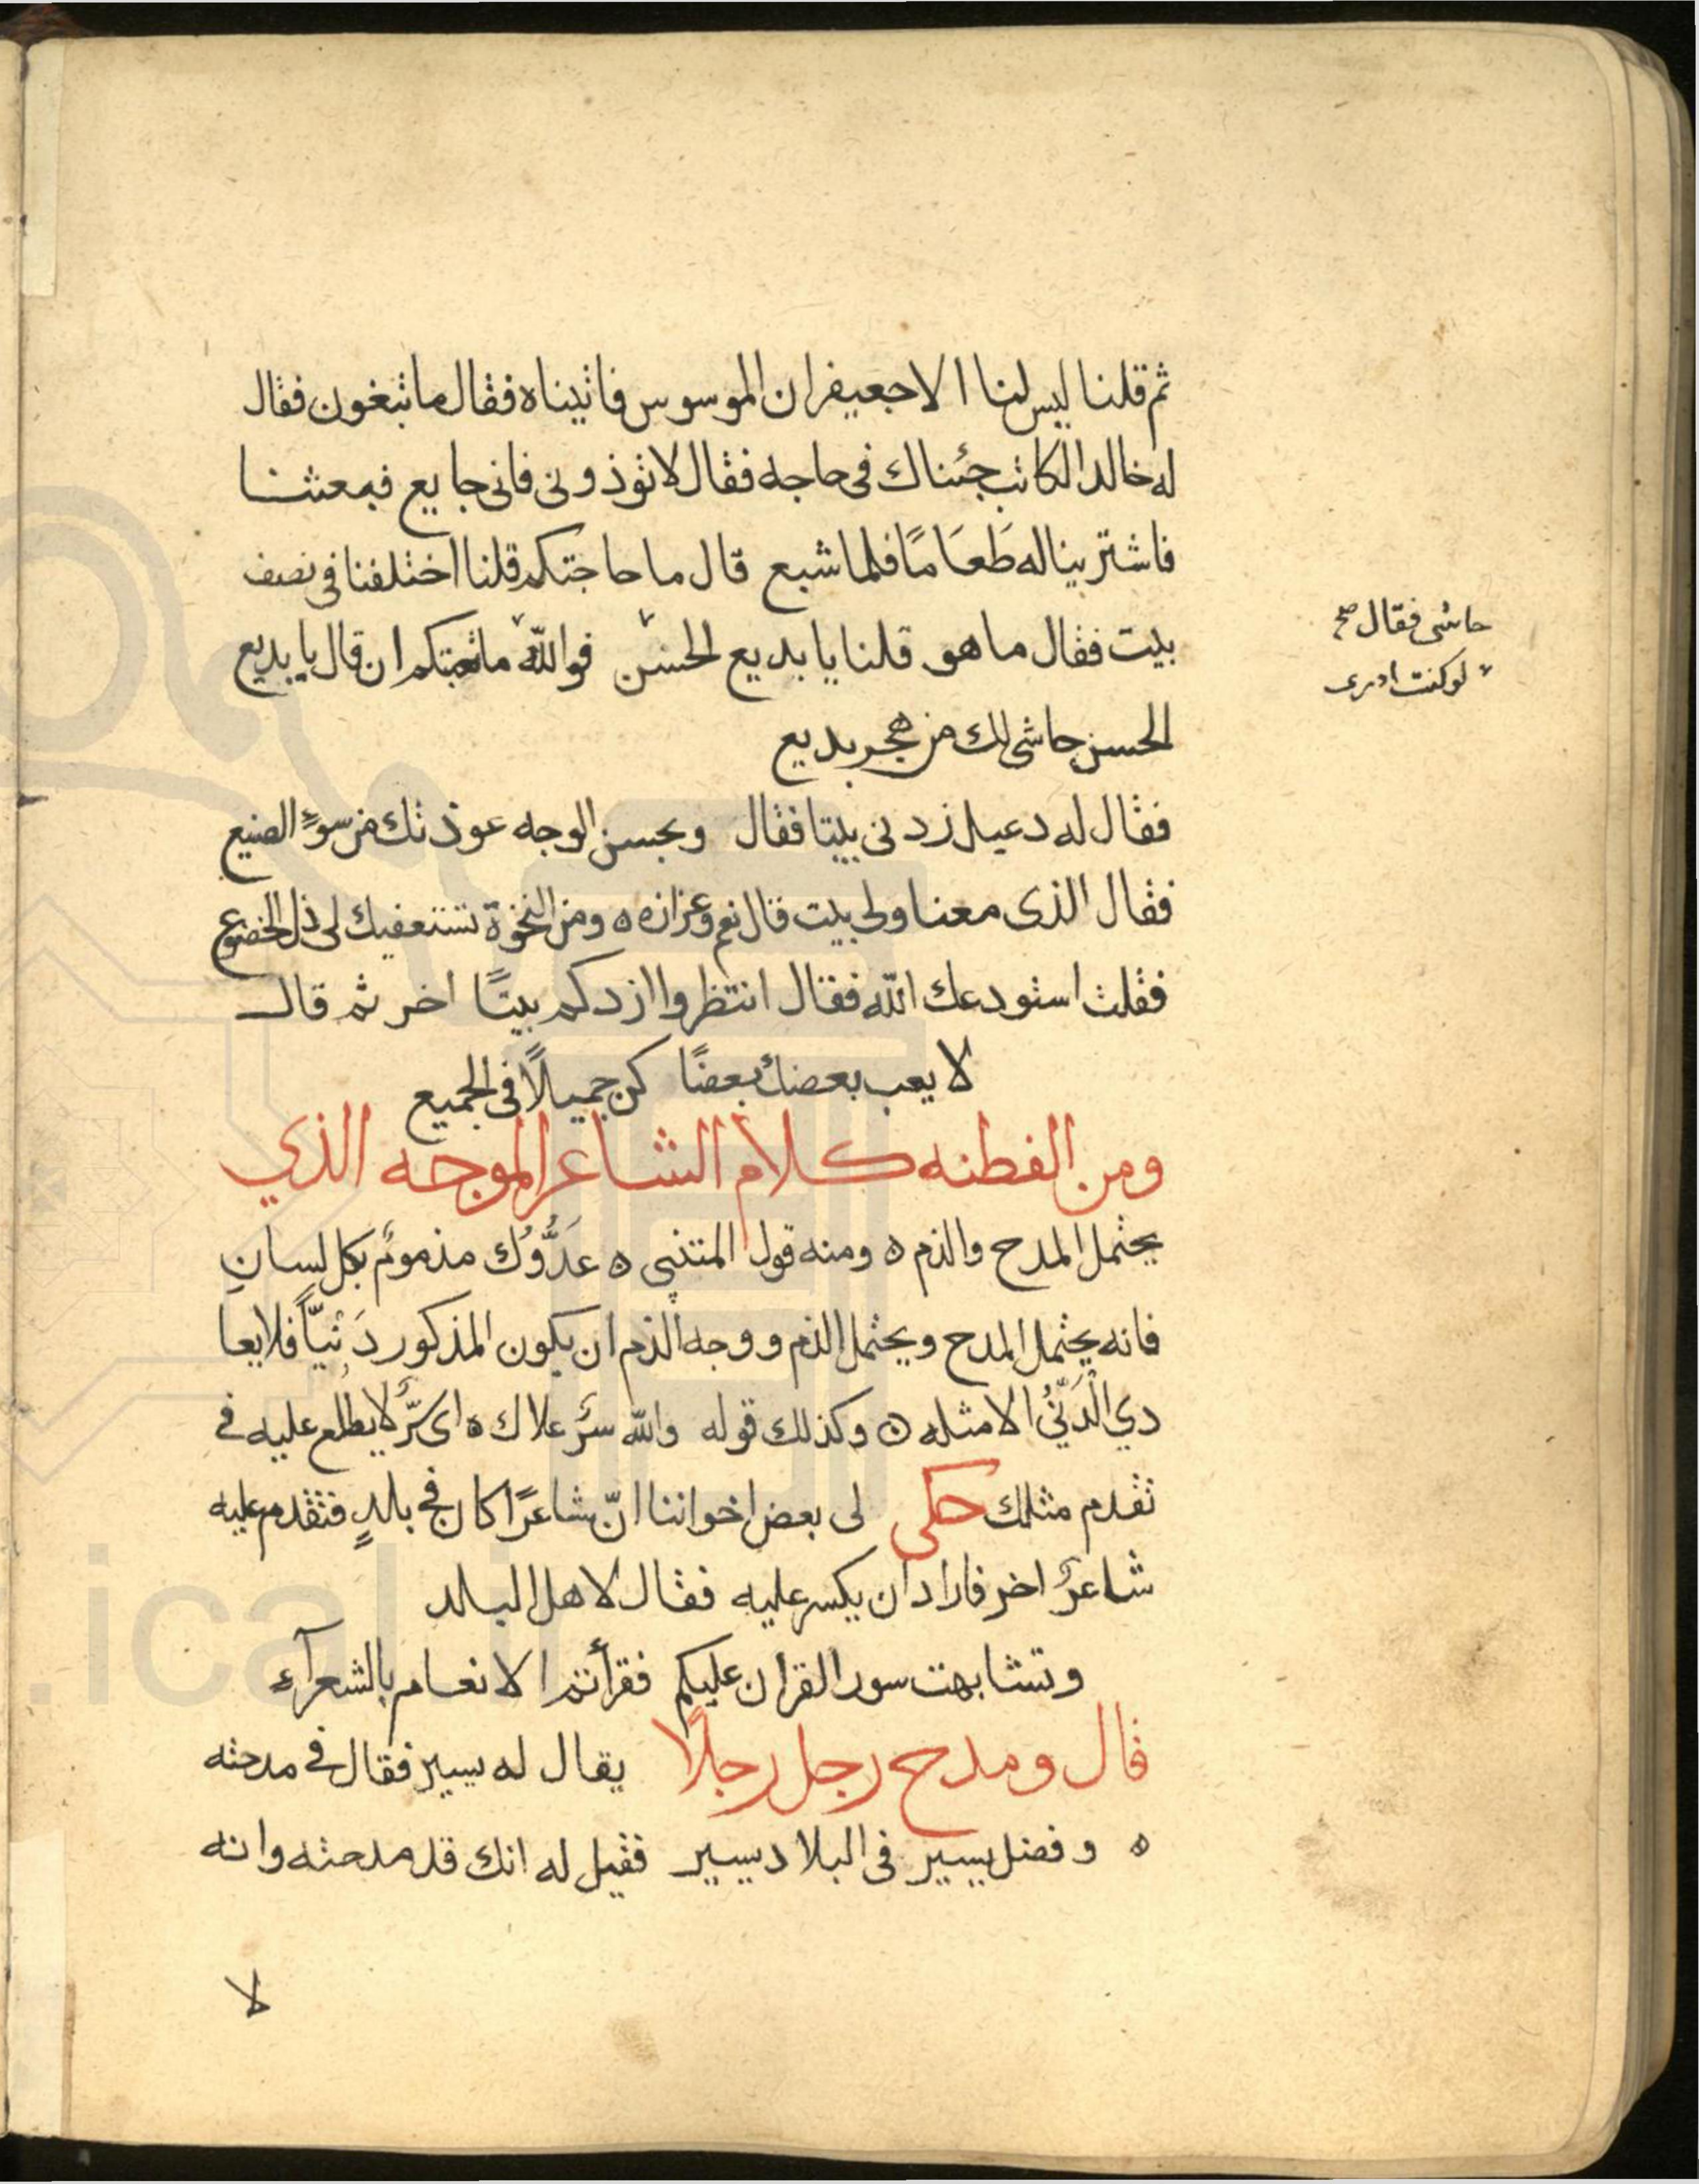 ثم قلنا ليس لنا الا جعيفران الموسوس فاتيناه فقال ما تبغون فقال
له خالد الكاتب جئناك فى حاجه فقال لا توذونى فانى جايع فبعثنا
فاشترينا له طَعَامًا فلما شبع قال ما حاجتكم قلنا اختلفنا فى نصف
بيت فقال ما هو قلنا يا بديع الحسن فوالله ما تعبتكم ان قال يا بديع
حاشى فقال صح
لو كنت ادرى
الحسن حاشى لك من هجر بديع
فقال له دعبل زدنى بيتا فقال وبحسن الوجه عوذتك من سوءِ الصنيع
فقال الذى معنا ولى بيت قال نعم وعزازه ه ومن النخوة تستعفيك لى ذل الخضوع
فقلت استودعك الله فقال انتظروا ازدكم بيتًا اخر ثم قال
لا يعب بعضك بعضًا كن جميلًا فى الجميع
ومن الفطنه كلام الشاعر الموجه الذي
يحتمل المدح والذم ه ومنه قول المتنبى ه عَدُّوُك مذمومٌ بكل لسانِ
فانه يحتمل المدح ويحتمل الذم ووجه الذم ان يكون المذكور دَنِيّاً فلا يعا
دي الْدَنّيُ الا مثله ه وكذلك قوله والله سرٌ علاك ه اى سّرٌ لا يطلع عليه فى
تقدم مثلك حكى لى بعض اخواننا انّ شاعرًا كان فى بلدٍ فتقدم عليه
شاعرٌ اخر فاراد ان يكسر عليه فقال لاهل البلد
وتشابهت سور القران عليكم فقرأتم الانعام بالشعرآء
قال ومدح رجل رجلًا يقال له يسير فقال فى مدحته
ه وفضل يسير فى البلاد يسير فقيل له انك قد مدحته وانه
لا